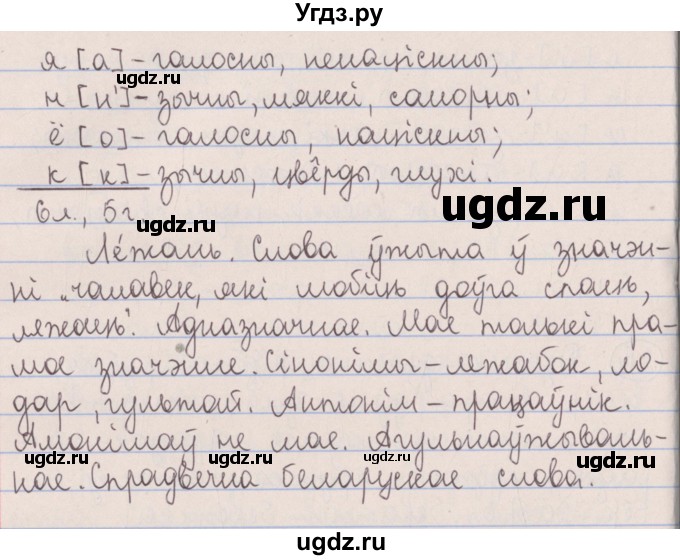 Угдз.ру
я [а] – галосны, ненаціскны;
н [н'] – зычны, мяккі, санорны;
ё [о] – галосны, націскны;
к [к] – зычны, цвёрды, глухі.
6 л., 5 г.
Ле́жань. Слова ўжыта ў значэн-
ні „чалавек, які любіць доўга спаць,
ляжаць“. Адназначнае. Мае толькі пра-
мое значэнне. Сінонімы – лежабок, ло-
дар, гультай. Антонім – працаўнік.
Амонімаў не мае. Агульнаўжываль-
нае. Спрадвечна беларускае слова.
ugdz.ru
ugdz.ru
ugdz.ru
ugdz.ru
ugdz.ru
ugdz.ru
ugdz.ru
ugdz.ru
ugdz.ru
ugdz.ru
ugdz.ru
ugdz.ru